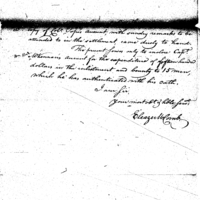 copy of Col. Tupes account, with sundry remarks to be
attended to in the settlement, came duly to hand.
The present serves only to enclose Capt
Wm. McKennans account for the expenditure of fifteen hundred
dollars in the inlistment and bounty to 15 men,
which he has authenticated with his oath.
I am Sir,
Your most obt. & hble. Servt.
Eleazer McComb